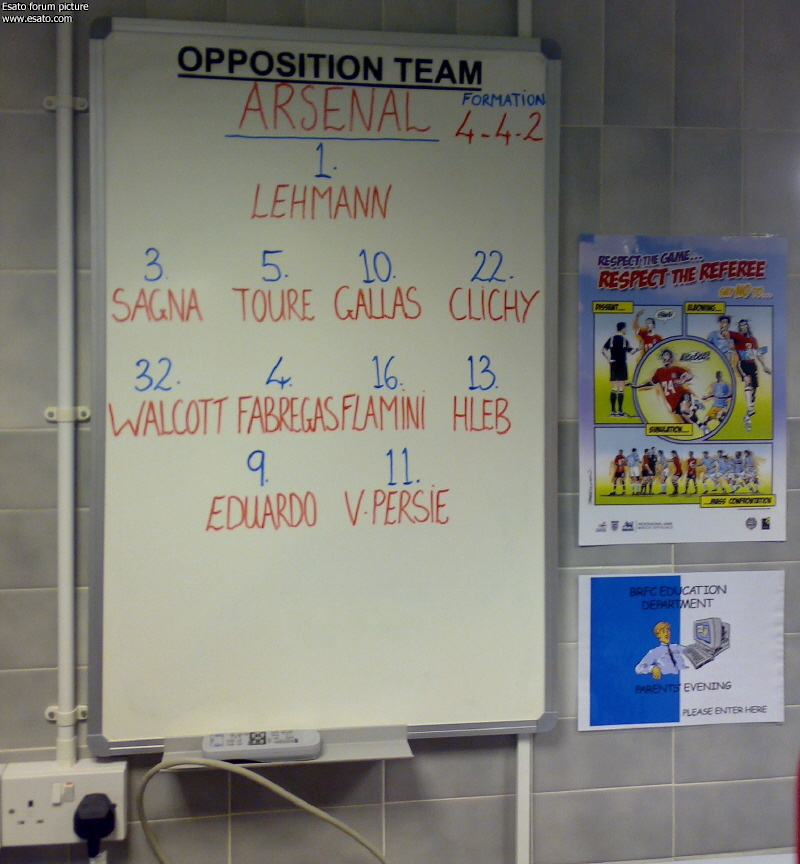 Esato forum picture
www.esato.com
OPPOSITION TEAM
ARSENAL
FORMATION
4-4-2
1.
LEHMANN
3. 5. 10. 22.
SAGNA TOURE GALLAS CLICHY
32. 4. 16. 13.
WALCOTT FABREGAS FLAMINI HLEB
9. 11.
EDUARDO V.PERSIE
RESPECT THE GAME...
RESPECT THE REFEREE
SAY NO TO...
DISSENT...
ELBOWING...
24
SIMULATION...
...MASS CONFRONTATION
BRFC EDUCATION
DEPARTMENT
PARENTS' EVENING
PLEASE ENTER HERE